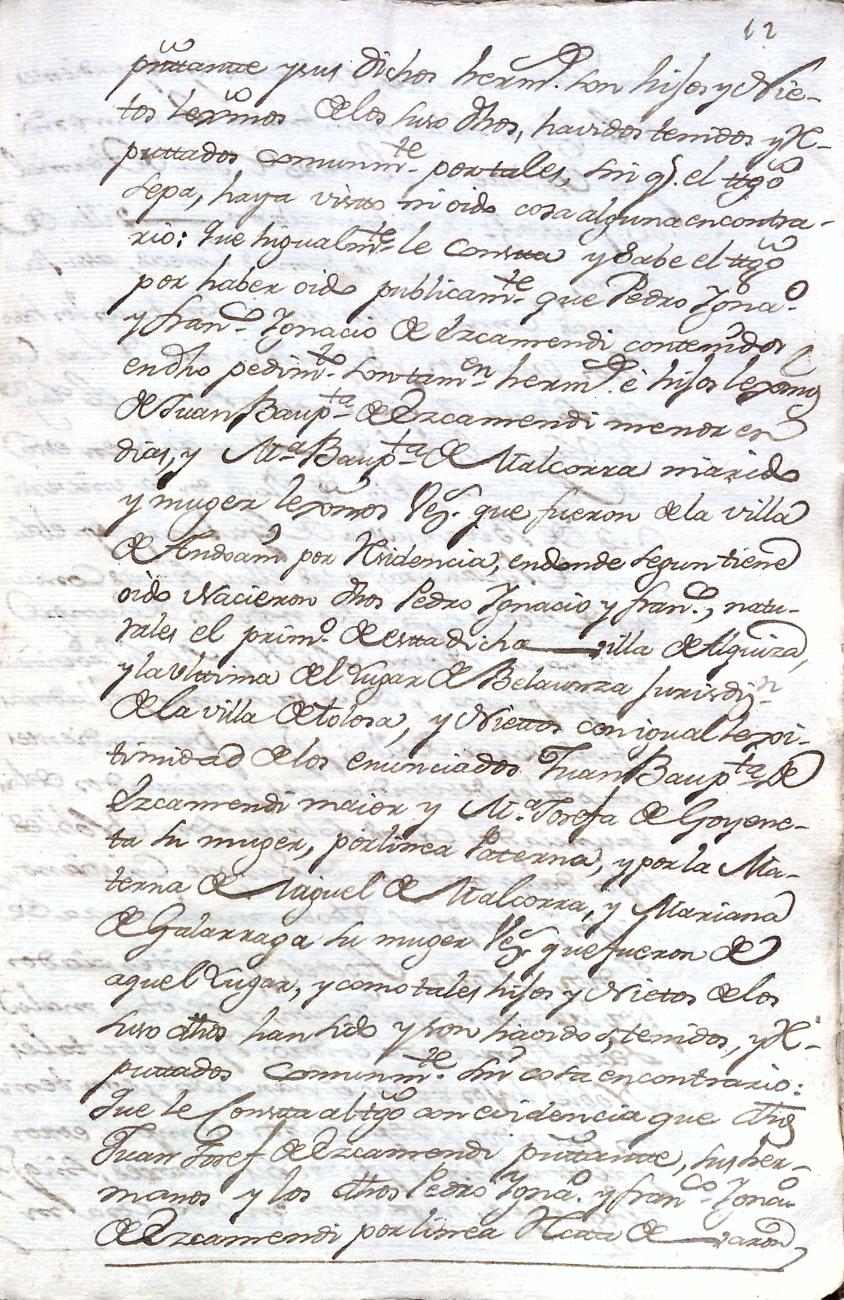 12
presentante y sus dichos herm.s son hijos y Nie-
tos lexmos de los suso dhos, havidos tenidos y re-
puttados comunm.te por tales, sin q.e el ttgo
sepa, haya visto ni oido cosa alguna en contra-
rio: Que higualm.te le Constta y Sabe el ttgo
por haber oido publicam.te que Pedro Igna.o
y Fran.co Ignacio de Ezcamendi contenidos
en dho pedim.to son tam.en herm.s e hijos lexmos
de Juan Baup.ta de Ezcamendi menor en
dias, y M.a Baup.ta de Malcorra marido
y muger lexmos Vez.s que fueron de la villa
de Andoain por residencia, en donde segun tiene
oido Nacieron dhos Pedro Ignacio y Fran.co, natu-
rales el prim.o de estta dicha villa de Alquiza,
y la Ultima del Lugar de Belaunza Jurisdi.n
de la villa de tolosa, y Niettos con igual lexi-
timidad de los enunciados Juan Baup.ta de
Ezcamendi maior y M.a Josefa de Goyene-
ta su muger, por linea Paterna, y por la Ma-
terna de Miguel de Malcorra, y Mariana
de Galarraga su muger Vez.s que fueron de
aquel Lugar, y como tales hijos y Nietos de los
suso dhos han sido y son havidos, tenidos, y re-
puttados comunm.te sin cosa en contrario:
Que le Constta al ttgo con evidencia que dho
Juan Josef de Ezcamendi presentante, sus her-
manos y los dhos Pedro Igna.o y Fran.co Ignacio
de Ezcamendi por linea recta de varon,